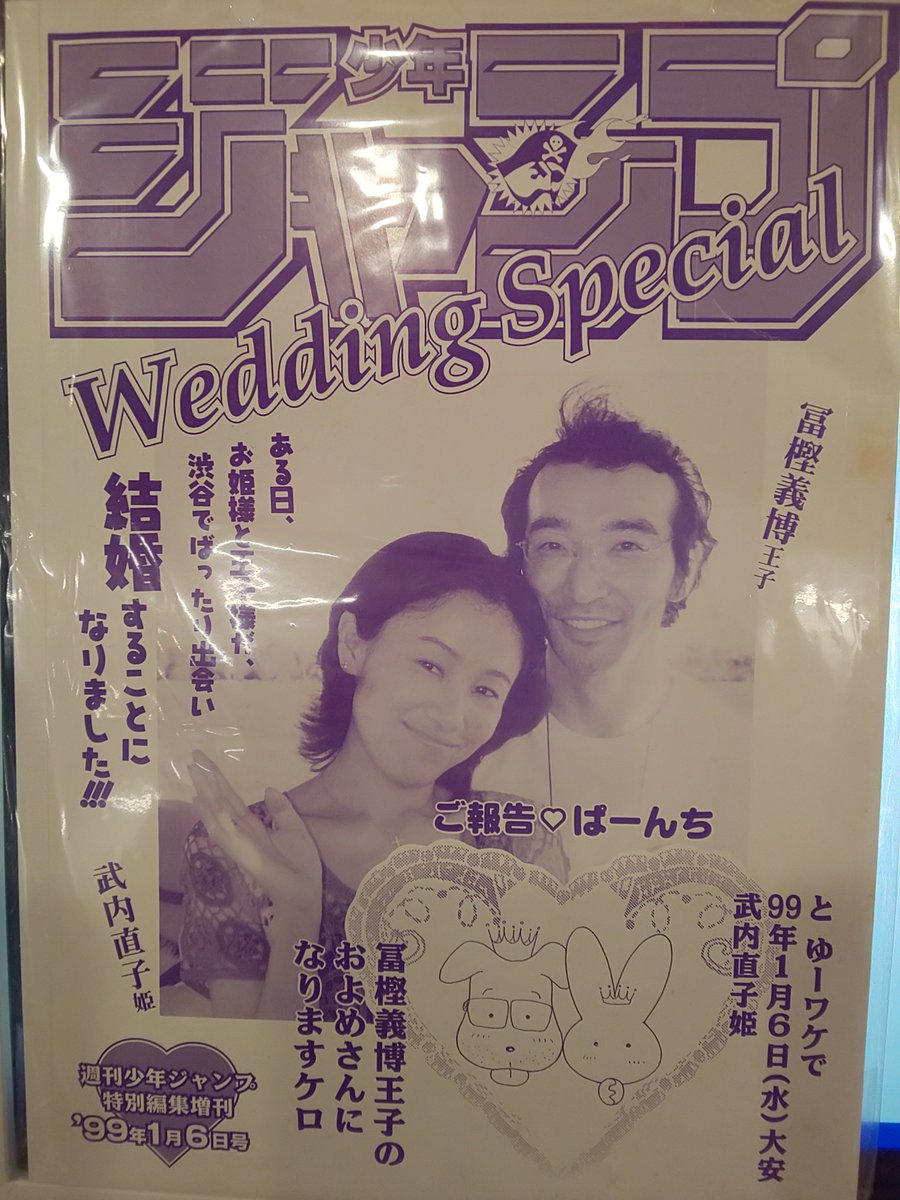 少年
ジャンプ
Wedding Special
冨樫義博王子
ある日、
お姫様と王子様が、
渋谷でばったり出会い
結婚することに
なりました!!!
武内直子姫
ご報告♡ぱーんち
とゆーワケで
99年1月6日(水)大安
武内直子姫
冨樫義博王子の
およめさんに
なりますケロ
週刊少年ジャンプ
特別編集増刊
'99年1月6日号